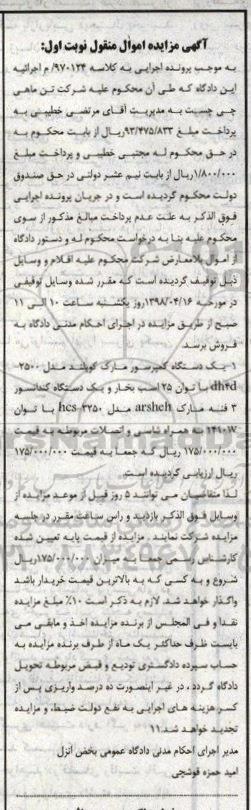 آگهی مزایده اموال منقول نوبت اول:
به موجب پرونده اجرایی به کلاسه ۹۷۰۱۳۴/م اجرائیه
این دادگاه که طی آن محکوم علیه شرکت تن ماهی
چی چست به مدیریت آقای مرتضی خطیبی به
پرداخت مبلغ ۹۳/۴۷۵/۸۳۳ریال از بابت محکوم به
در حق محکوم له مجتبی خطیبی و پرداخت مبلغ
۱/۸۰۰/۰۰۰ریال از بابت نیم عشر دولتی در حق صندوق
دولت محکوم گردیده است و در جریان پرونده اجرایی
فوق الذکر به علت عدم پرداخت مبالغ مذکور از سوی
محکوم علیه بنا به درخواست محکوم له و دستور دادگاه
از اموال بلامعارض شرکت محکوم علیه اقلام و وسایل
ذیل توقیف گردیده است که مقرر شده وسایل توقیفی
در مورخه ۱۳۹۸/۰۴/۱۶روز یکشنبه ساعت ۱۰ الی ۱۱
صبح از طریق مزایده در اجرای احکام مدنی دادگاه به
فروش برسد.
۱- یک دستگاه کمپرسور مارک کوپلند مدل ۲۵۰۰-
dh4d با توان ۲۵ اسب بخار و یک دستگاه کندانسور
۳ فنه مارک arsheh مدل hcs-۳۲۵۰ با توان
۱۴۹۰W به همراه شاسی و اتصالات مربوطه به قیمت
۱۷۵/۰۰۰/۰۰۰ ریال که جمعا به قیمت ۱۷۵/۰۰۰/۰۰۰
ریال ارزیابی گردیده است.
لذا متقاضیان می توانند ۵ روز قبل از موعد مزایده از
وسایل فوق الذکر بازدید و راس ساعت مقرر در جلسه
مزایده شرکت نمایند . مزایده از قیمت پایه تعیین شده
کارشناس رسمی دادگستری به میزان ۱۷۵/۰۰۰/۰۰۰ریال
شروع و به کسی که به بالاترین قیمت خریدار باشد
واگذار خواهد شد. لازم به ذکر است ۱۰٪ مبلغ مزایده
نقدا و فی المجلس از برنده مزایده اخذ و مابقی می
بایست ظرف حداکثر یک ماه از طرف برنده مزایده به
حساب سپرده دادگستری تودیع و قبض مربوطه تحویل
دادگاه گردد ، در غیر اینصورت ده درصد واریزی پس از
کسر هزینه های اجرایی به نفع دولت ضبط، و مزایده
تجدید خواهد شد.۱۱
مدیر اجرای احکام مدنی دادگاه عمومی بخش انزل
امید حمزه قوشچی